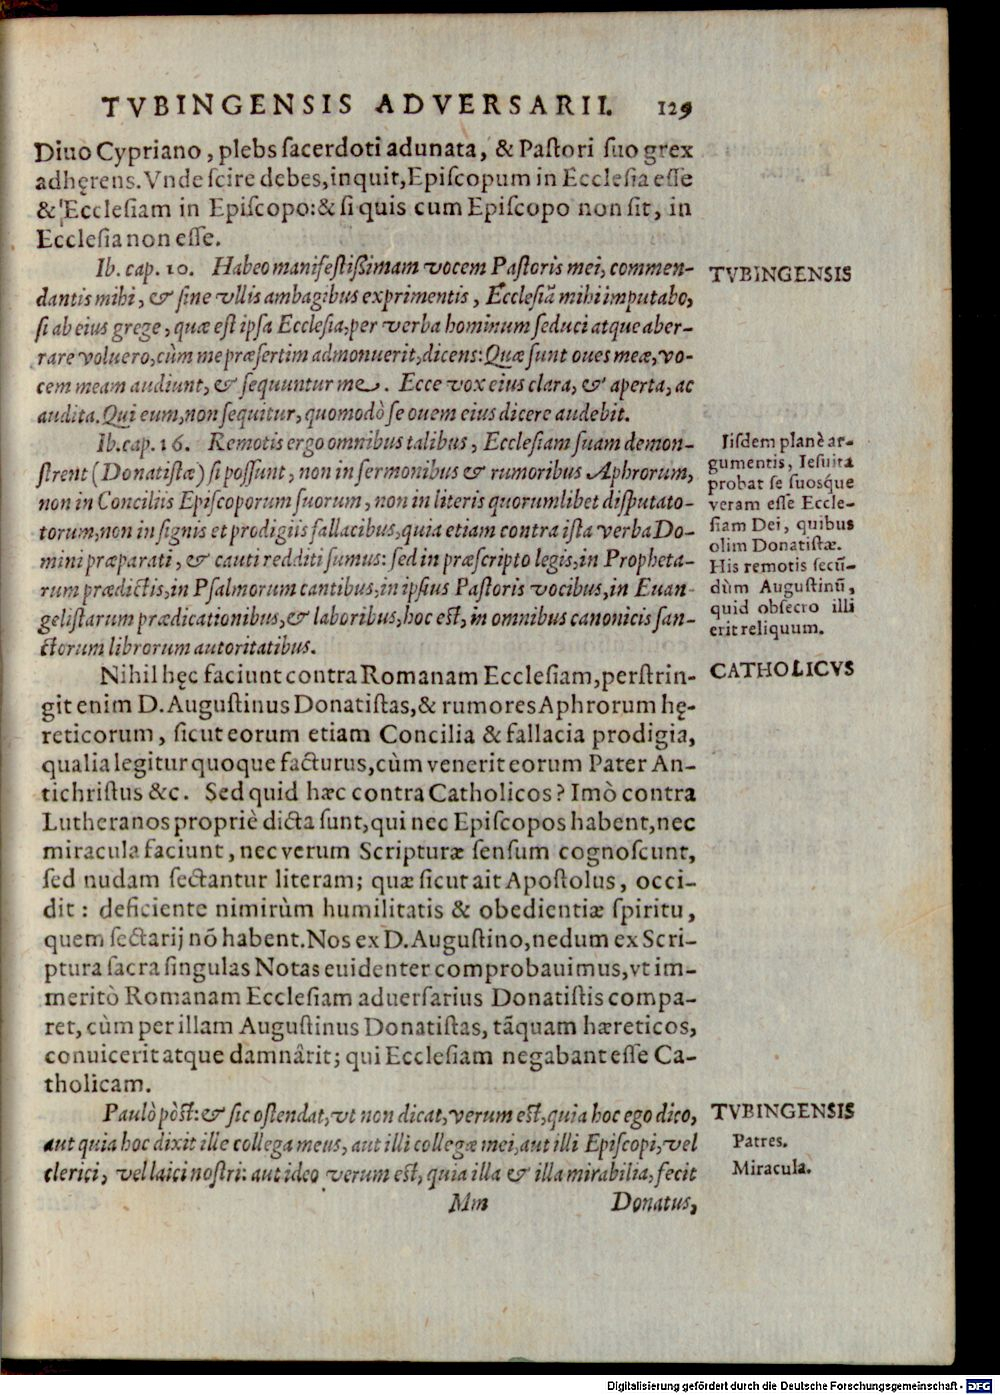 TVBINGENSIS ADVERSARII. 129
Diuo Cypriano, plebs sacerdoti adunata, & Pastori suo grex
adhęrens. Vnde scire debes, inquit, Episcopum in Ecclesia esse
& Ecclesiam in Episcopo: & si quis cum Episcopo non sit, in
Ecclesia non esse.
Ib. cap. 10. Habeo manifestißimam vocem Pastoris mei, commen-
dantis mihi, & sine vllis ambagibus exprimentis, Ecclesiā mihi imputabo,
si ab eius grege, quæ est ipsa Ecclesia, per verba hominum seduci atque aber-
rare voluero, cùm me præsertim admonuerit, dicens: Quæ sunt oues meæ, vo-
cem meam audiunt, & sequuntur me. Ecce vox eius clara, & aperta, ac
audita. Qui eum, non sequitur, quomodò se ouem eius dicere audebit.
Ib. cap. 16. Remotis ergo omnibus talibus, Ecclesiam suam demon-
strent (Donatistæ) si possunt, non in sermonibus & rumoribus Aphrorum,
non in Conciliis Episcoporum suorum, non in literis quorumlibet disputato-
torum, non in signis et prodigiis fallacibus, quia etiam contra ista verba Do-
mini præparati, & cauti redditi sumus: sed in præscripto legis, in Propheta-
rum prædictis, in Psalmorum cantibus, in ipsius Pastoris vocibus, in Euan-
gelistarum prædicationibus, & laboribus, hoc est, in omnibus canonicis san-
ctorum librorum autoritatibus.
Nihil hęc faciunt contra Romanam Ecclesiam, perstrin-
git enim D. Augustinus Donatistas, & rumores Aphrorum hę-
reticorum, sicut eorum etiam Concilia & fallacia prodigia,
qualia legitur quoque facturus, cùm venerit eorum Pater An-
tichristus &c. Sed quid hæc contra Catholicos? Imò contra
Lutheranos propriè dicta sunt, qui nec Episcopos habent, nec
miracula faciunt, nec verum Scripturæ sensum cognoscunt,
sed nudam sectantur literam; quæ sicut ait Apostolus, occi-
dit: deficiente nimirùm humilitatis & obedientiæ spiritu,
quem sectarij nō habent. Nos ex D. Augustino, nedum ex Scri-
ptura sacra singulas Notas euidenter comprobauimus, vt im-
meritò Romanam Ecclesiam aduersarius Donatistis compa-
ret, cùm per illam Augustinus Donatistas, tāquam hæreticos,
conuicerit atque damnârit; qui Ecclesiam negabant esse Ca-
tholicam.
Paulò pòst: & sic ostendat, vt non dicat, verum est, quia hoc ego dico,
aut quia hoc dixit ille collega meus, aut illi collegæ mei, aut illi Episcopi, vel
clerici, vel laici nostri: aut ideo verum est, quia illa & illa mirabilia, fecit
Mm Donatus,
TVBINGENSIS
Iisdem planè ar-
gumentis, Iesuita
probat se suosque
veram esse Eccle-
siam Dei, quibus
olim Donatistæ.
His remotis secū-
dùm Augustinū,
quid obsecro illi
erit reliquum.
CATHOLICVS
TVBINGENSIS
Patres.
Miracula.
Digitalisierung gefördert durch die Deutsche Forschungsgemeinschaft - DFG